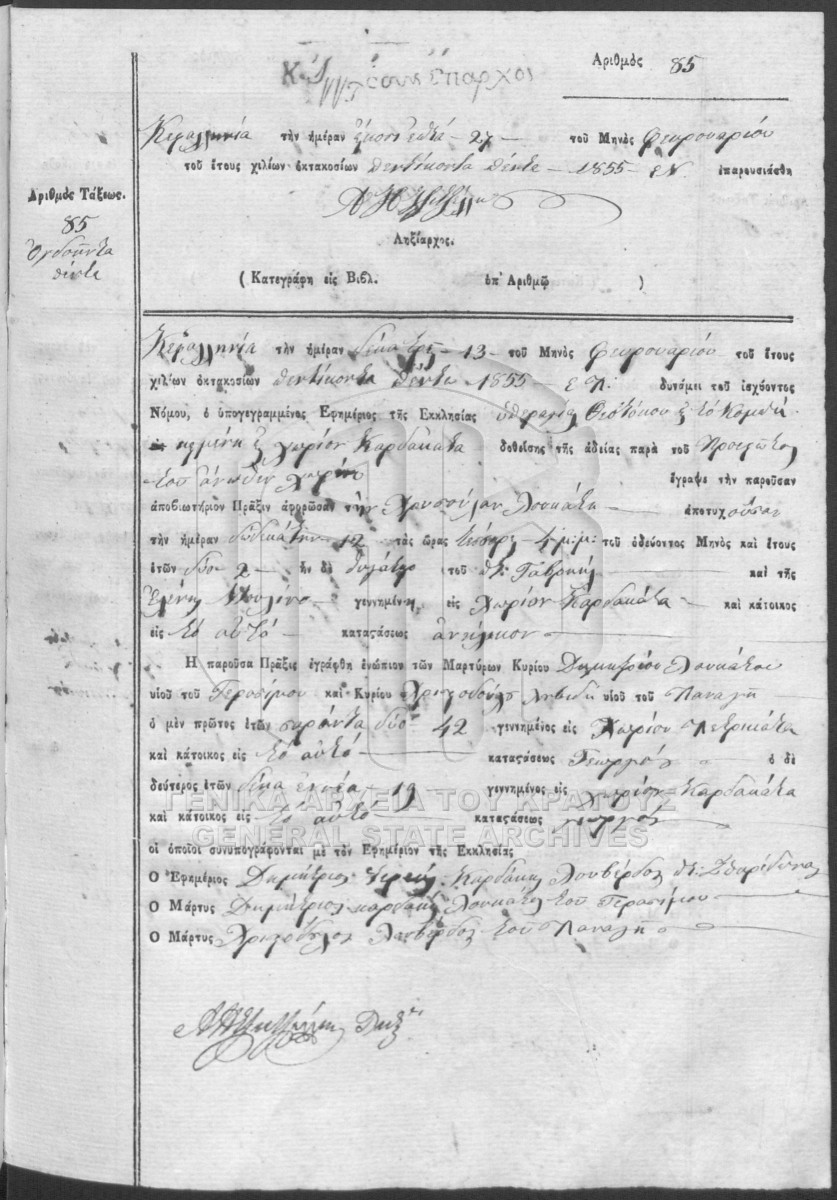 Ἀριθμὸς 85
Κεφαλληνία τὴν ἡμέραν εἴκοσι ἑπτὰ - 27 - τοῦ Μηνὸς Φευρουαρίου
τοῦ ἔτους χιλίων ὀκτακοσίων πεντήκοντα πέντε - 1855 - ἐπαρουσιάσθη
Ληξίαρχος.
( Κατεγράφη εἰς Βιβλ. ὑπ' Ἀριθμῷ )
Ἀριθμὸς Τάξεως.
85
Ὀγδοῆντα
πέντε
Κεφαλληνία τὴν ἡμέραν δέκα τρεῖς - 13 - τοῦ Μηνὸς Φευρουαρίου τοῦ ἔτους
χιλίων ὀκτακοσίων πεντήκοντα πέντε 1855 - δυνάμει τοῦ ἰσχύοντος
Νόμου, ὁ ὑπογεγραμμένος Ἐφημέριος τῆς Ἐκκλησίας ὑπεραγίας Θεοτόκου
χωρίον Καρδακάτα δοθείσης τῆς ἀδείας παρὰ τοῦ Προεστῶτος
τοῦ ἄνωθεν χωρίου ἔγραψε τὴν παροῦσαν
ἀποβιωτήριον Πρᾶξιν ἀφορῶσαν τὴν Χρυσούλαν Λουκάτα ἀποτυχοῦσαν
τὴν ἡμέραν δωδεκάτην - 12 τὰς ὥρας τέσσαρες - 4 μ:μ: τοῦ ὁδεύοντος Μηνὸς καὶ ἔτους
ἐτῶν δύο 2 - ἦν δὲ θυγάτηρ τοῦ Γαβριήλ καὶ τῆς
Ἑλένης γεννημένη εἰς Χωρίον Καρδακάτα καὶ κάτοικος
εἰς τὸ αὐτό - καταςάσεως ἀνήλικον
Ἡ παροῦσα Πρᾶξις ἐγράφθη ἐνώπιον τῶν Μαρτύρων Κυρίου Δημητρίου Λουκάτου
υἱοῦ τοῦ Γερασίμου καὶ Κυρίου Χριστοδούλου υἱοῦ τοῦ Παναγῆ
ὁ μὲν πρῶτος ἐτῶν σαράντα δύο - 42 γεννημένος εἰς Χωρίον Πετρικάτα
καὶ κάτοικος εἰς τὸ αὐτό - καταςάσεως Γεωργός ὁ δὲ
δεύτερος ἐτῶν δέκα ἐννέα 19 γεννημένος εἰς χωρίον Καρδακάτα
καὶ κάτοικος εἰς τὸ αὐτό - καταςάσεως γεωργός
οἱ ὁποῖοι συνυπογράφονται μὲ τὸν Ἐφημέριον τῆς Ἐκκλησίας
Ὁ Ἐφημέριος Δημήτριος Ἱερεύς
Ὁ Μάρτυς Δημήτριος Λουκάτος τοῦ Γερασίμου
Ὁ Μάρτυς Χριστόδουλος τοῦ Παναγῆ
ΓΕΝΙΚΑ ΑΡΧΕΙΑ ΤΟΥ ΚΡΑΤΟΥΣ
GENERAL STATE ARCHIVES